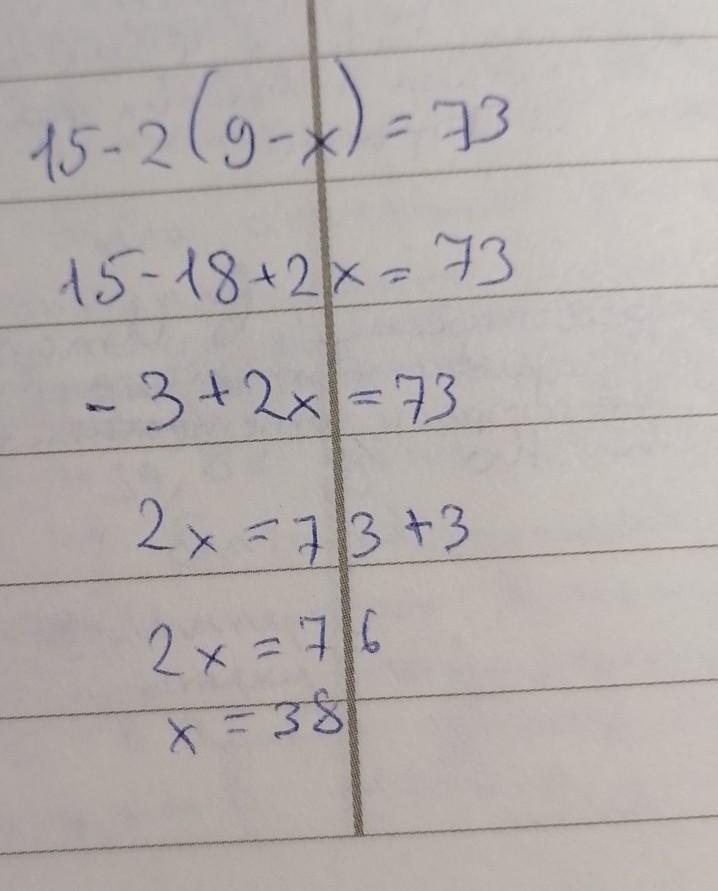 15-2(9-x)=73
15-18+2x=73
-3+2x=73
2x=73+3
2x=76
x=38